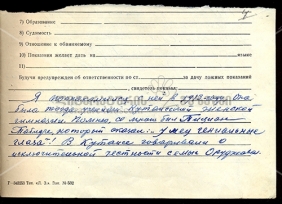 7) Образование
8) Судимость
9) Отношение к обвиняемому
10) Показания может дать на
Будучи предупрежден об ответственности по ст. за дачу ложных показаний
свидетель показал:
Я познакомился с ней в 1912 году. Она
была тогда ученицей Кутаисской женской
гимназии. Помню, со мной был Тициан
Табидзе, который сказал: "У нее гениальные
глаза"! В Кутаисе говорили о
исключительной честности семьи